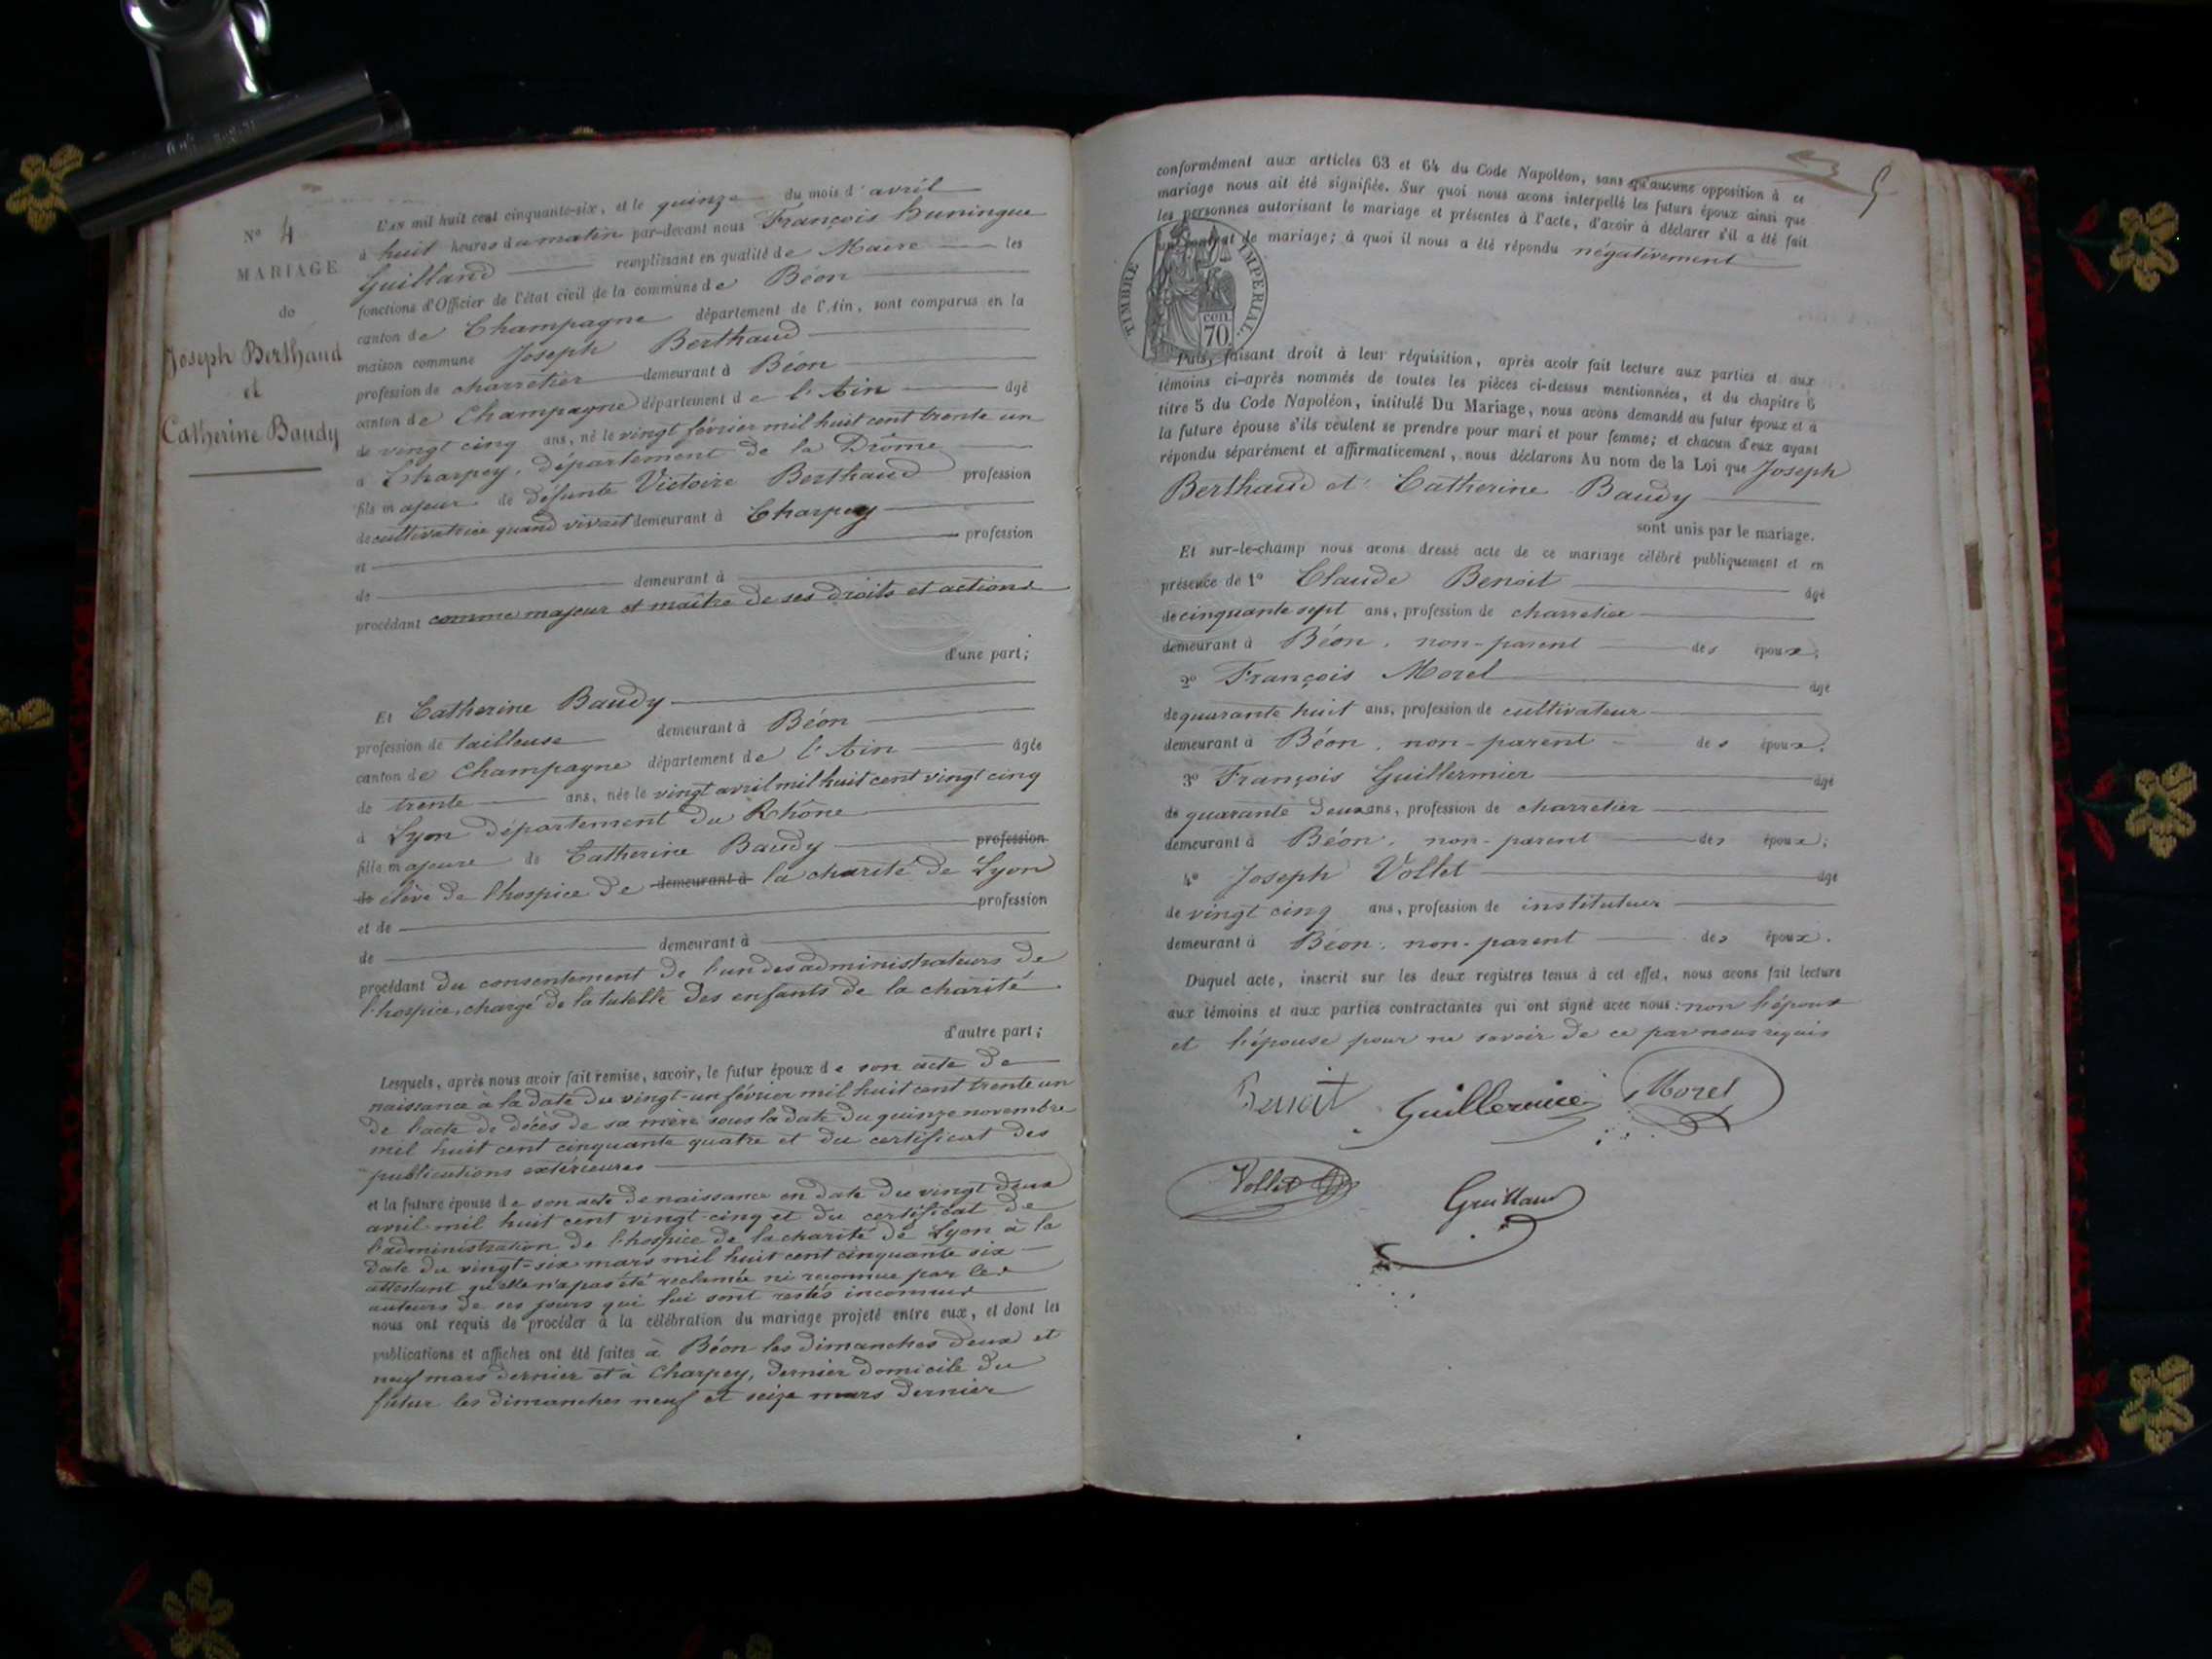 N° 4
MARIAGE
de
Joseph Berthaud
et
Catherine Baudy
L'AN mil huit cent cinquante-six, et le quinze du mois d'avril
à huit heures du matin par-devant nous François huningue
Guilland remplissant en qualité de Maire les
fonctions d'Officier de l'état civil de la commune de Béon
canton de Champagne département de l'Ain, sont comparus en la
maison commune Joseph Berthaud
profession de charretier demeurant à Béon
canton de Champagne département de l'Ain âgé
de vingt cinq ans, né le vingt février mil huit cent trente un
à Charpey, département de la Drôme
fils majeur de défunte Victoire Berthaud profession
de cultivatrice quand vivait demeurant à Charpey
et profession
de demeurant à
procédant comme majeur et maître de ses droits et actions
d'une part;
Et Catherine Baudy
profession de tailleuse demeurant à Béon
canton de Champagne département de l'Ain âgée
de trente ans, née le vingt avril mil huit cent vingt cinq
à Lyon département du Rhône
fille majeure de Catherine Baudy profession
de élève de l'hospice de demeurant à la charité de Lyon
et de profession
de demeurant à
procédant du consentement de l'un des administrateurs de
l'hospice, chargé de la tutelle des enfants de la charité
d'autre part;
Lesquels, après nous avoir fait remise, savoir, le futur époux de son acte de
naissance à la date du vingt-un février mil huit cent trente un
de l'acte de décès de sa mère sous la date du quinze novembre
mil huit cent cinquante quatre et du certificat des
publications extérieures
et la future épouse de son acte de naissance en date du vingt deux
avril mil huit cent vingt-cinq et du certificat de
l'administration de l'hospice de la charité de Lyon à la
date du vingt-six mars mil huit cent cinquante six
attestant qu'elle n'a pas été reclamée ni reconnue par les
auteurs de ses jours qui lui sont restés inconnus
nous ont requis de procéder à la célébration du mariage projeté entre eux, et dont les
publications et affiches ont été faites à Béon les dimanches deux et
neuf mars dernier et à Charpey, dernier domicile du
futur les dimanches neuf et seize mars dernier
5
conformément aux articles 63 et 64 du Code Napoléon, sans qu'aucune opposition à ce
mariage nous ait été signifiée. Sur quoi nous avons interpellé les futurs époux ainsi que
les personnes autorisant le mariage et présentes à l'acte, d'avoir à déclarer s'il a été fait
un contrat de mariage; à quoi il nous a été répondu négativement
TIMBRE IMPERIAL.
cen.
70
Puis, faisant droit à leur réquisition, après avoir fait lecture aux parties et aux
témoins ci-après nommés de toutes les pièces ci-dessus mentionnées, et du chapitre 6
titre 5 du Code Napoléon, intitulé Du Mariage, nous avons demandé au futur époux et à
la future épouse s'ils veulent se prendre pour mari et pour femme; et chacun d'eux ayant
répondu séparément et affirmativement, nous déclarons Au nom de la Loi que Joseph
Berthaud et Catherine Baudy
sont unis par le mariage.
Et sur-le-champ nous avons dressé acte de ce mariage célébré publiquement et en
présence de 1° Claude Benoit âgé
de cinquante sept ans, profession de charretier
demeurant à Béon, non-parent des époux;
2° François Morel âgé
de quarante huit ans, profession de cultivateur
demeurant à Béon, non-parent des époux;
3° François Guillermier âgé
de quarante deux ans, profession de charretier
demeurant à Béon, non-parent des époux;
4° Joseph Vollet âgé
de vingt cinq ans, profession de instituteur
demeurant à Béon, non-parent des époux.
Duquel acte, inscrit sur les deux registres tenus à cet effet, nous avons fait lecture
aux témoins et aux parties contractantes qui ont signé avec nous: non l'époux
et l'épouse pour ne savoir de ce par nous requis
Benoit Guillermier Morel
Vollet Guilland